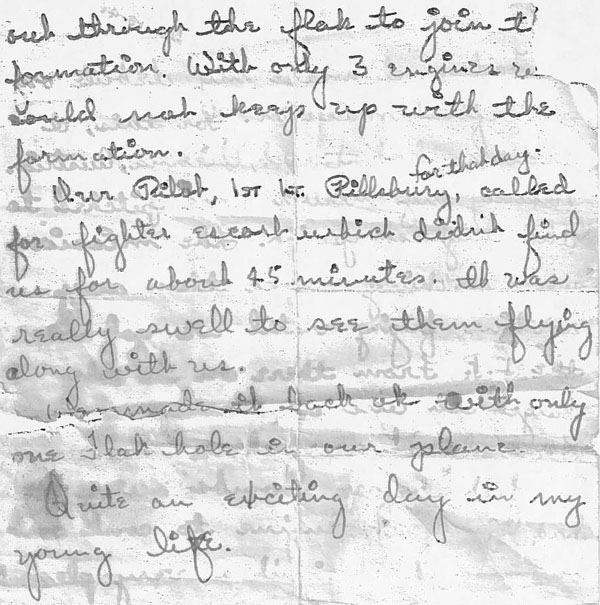 out through the flak to join t
formation. With only 3 engines
could not keep up with the
formation.
for that day.
Our Pilot, 1ST Lt. Pillsbury, called
for fighter escort which didn't find
us for about 45 minutes. It was
really swell to see them flying
along with us.
We made it back ok with only
one flak hole in our plane.
Quite an exciting day in my
young life.